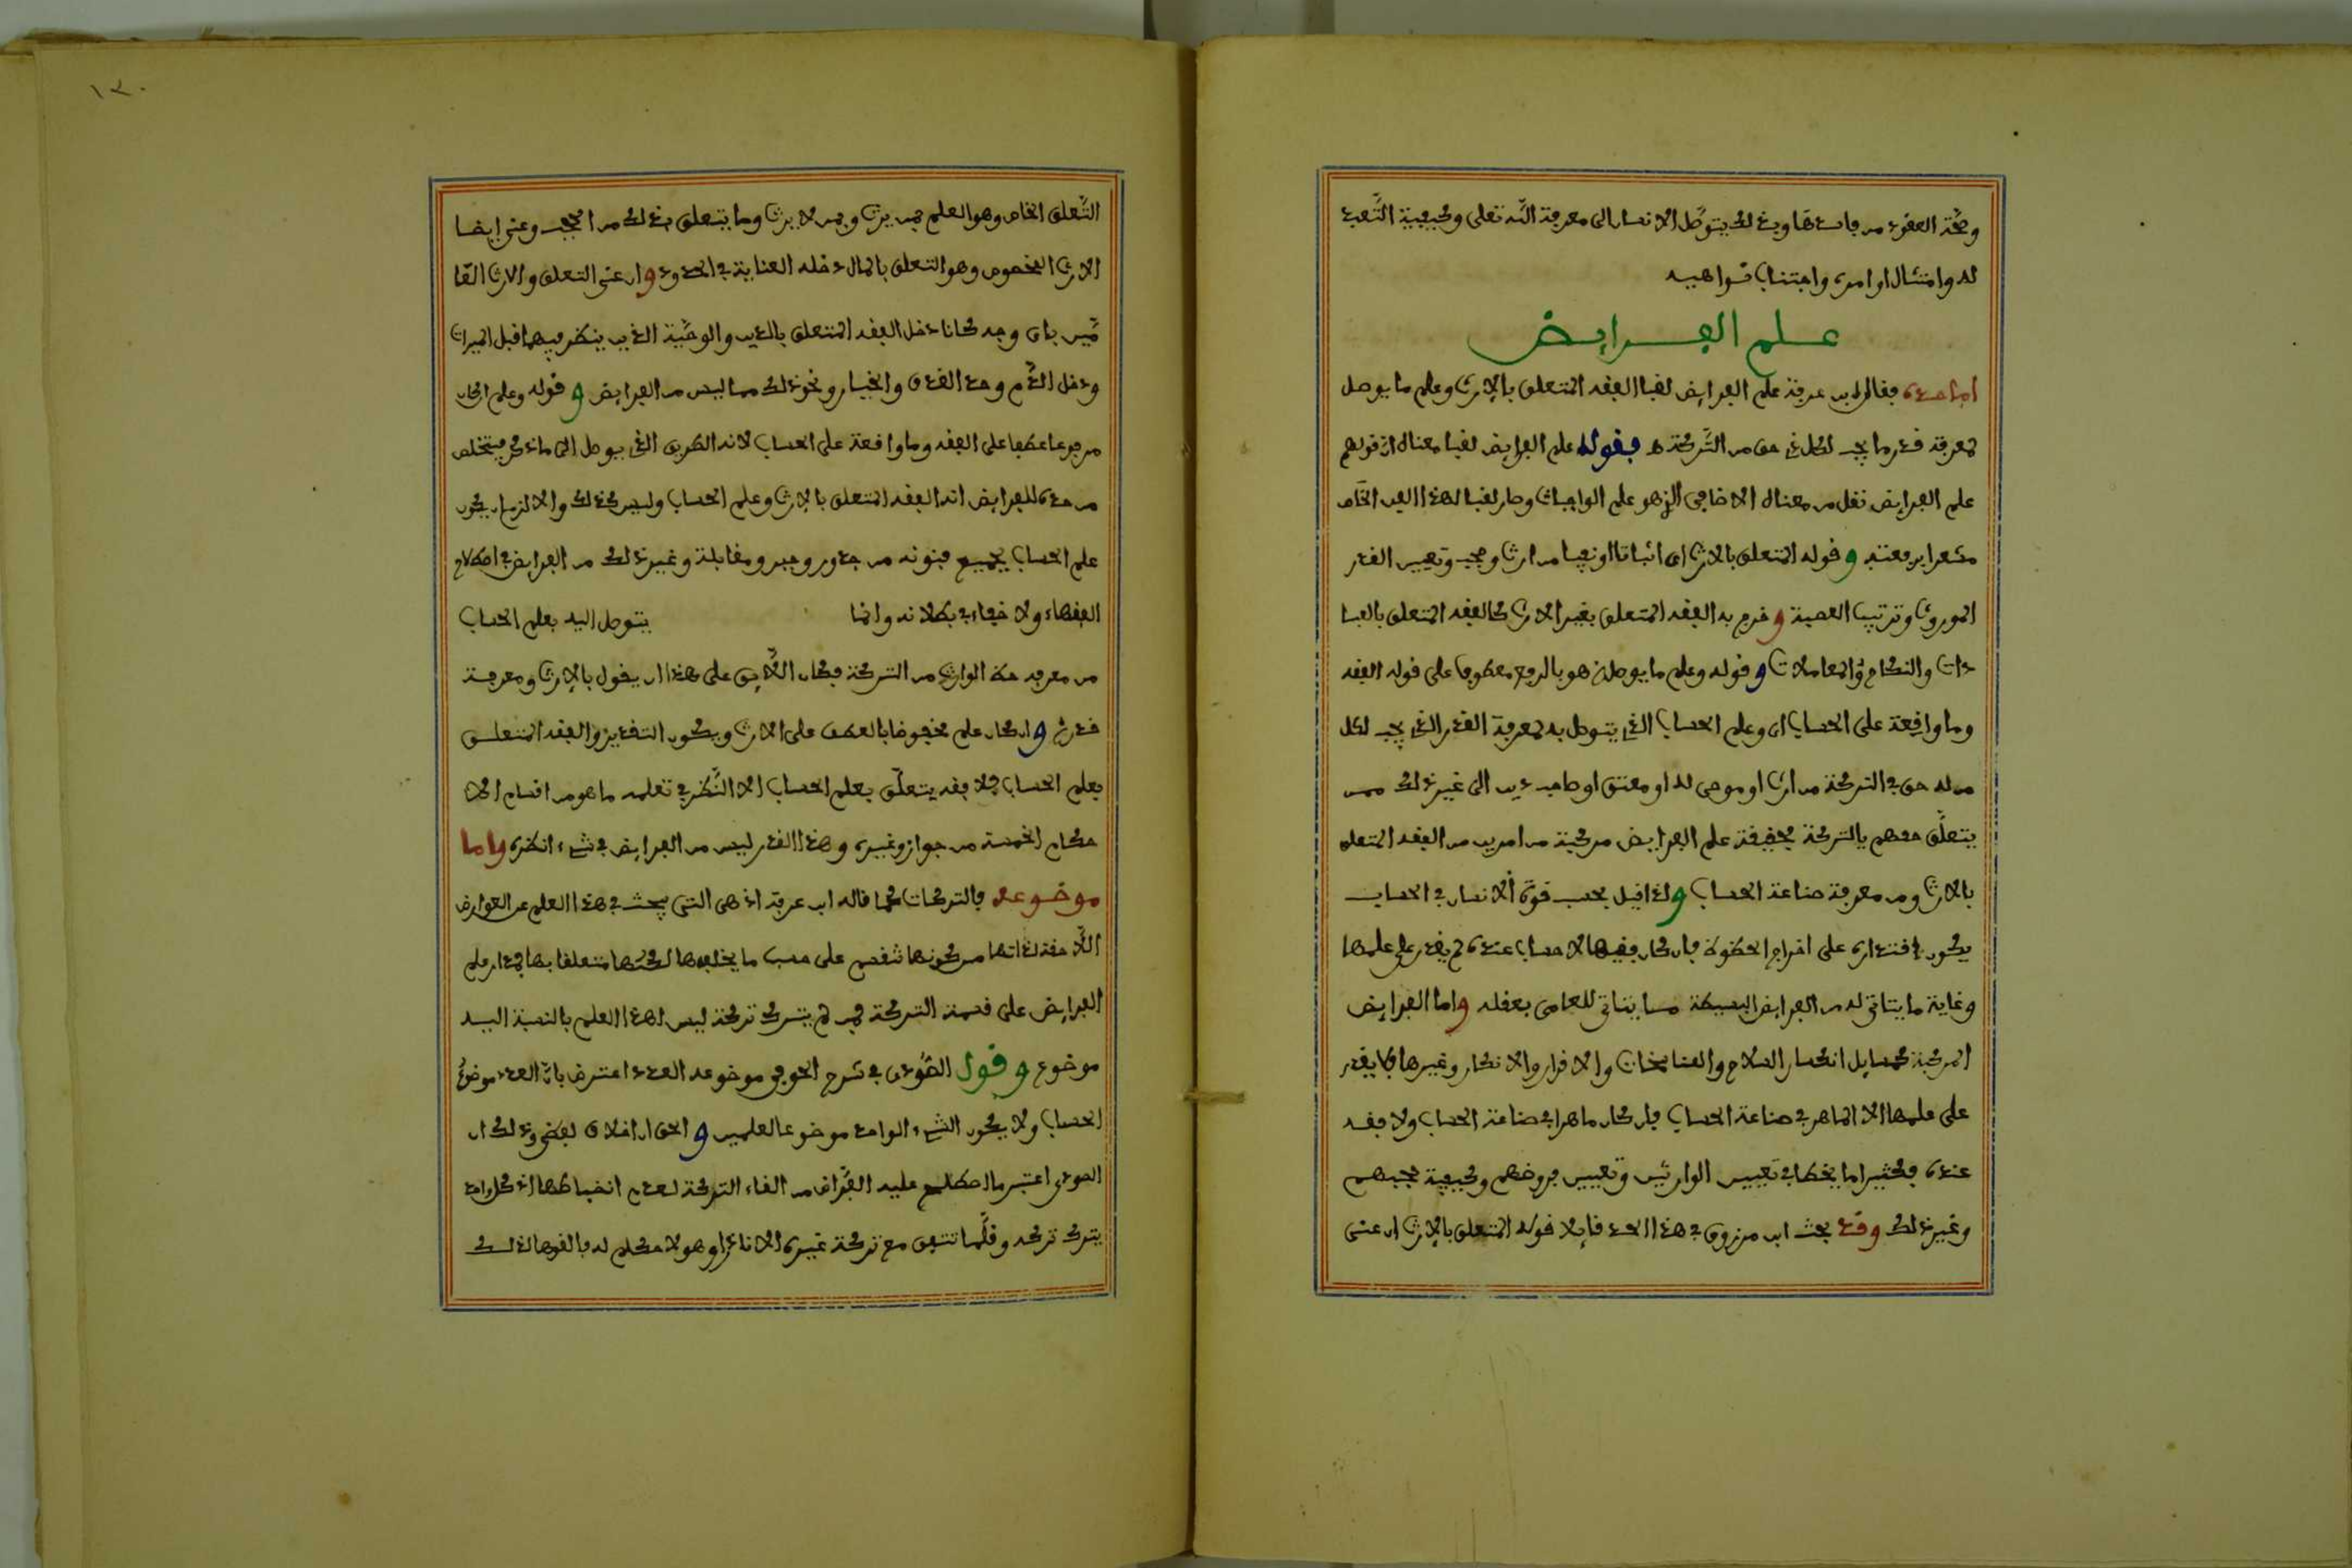 وصحّة العقود من فاسدها وبذلك يتوصّل الانسان الى معرفة الله تعلى وكيفية التّعبد
له وامتثال اوامره واجتناب نواهيه
علم الفرايض
اما حده فقال ابن عرفة علم الفرايض لقبا الفقه المتعلق بالارث وعلم ما يوصل
لمعرفة قدر ما يجب لكل ذي حق من التّركة فقوله علم الفرايض لقبا معناه ان قولهم
علم الفرايض نقل من معناه الاضافي الذي هو علم الواجبات وصار لقبا لهذا الفن الخاص
مشعرا برفعته وقوله المتعلق بالارث اى اثباتا او نفيا من ارث وحجب وتعيين القدر
الموروث وترتيب العصبة وخرج به الفقه المتعلق بغير الارث كالفقه المتعلق بالعبا
دات والنكاح والمعاملات وقوله وعلم ما يوصل هو بالرفع معطوف على قوله الفقه
وما واقعة على الحساب اى وعلم الحساب الذي يتوصل به لمعرفة القدر الذي يجب لكل
من له حق في التركة من ارث او موصى له او معتق او صاحب دين الى غير ذلك ممن
يتعلّق حقهم بالتركة فحقيقة علم الفرايض مركبة من امرين من الفقه المتعلق
بالارث ومن معرفة صناعة الحساب ولذا قيل بحسب قوّة الانسان في الحساب
يكون اقتداره على اخراج الحظوظ فان كان فقيها لا حساب عنده لم يقدر على علمها
وغاية ما يتاتى له من الفرايض البسيطة مسا يتاتى للعامي بعقله واما الفرايض
المركبة كمسايل انكسار السلام والمناسخات والاقرار والانكار وغيرها فلا يقدر
على علمها الا الماهر في صناعة الحساب فان كان ماهرا في صناعة الحساب ولا فقه
عنده فكثيرا ما يخطا في تعيين الوارثين وتعيين فروضهم وكيفية حجبهم
وغير ذلك وقد بحث ابن مرزوق في هذا الحد قايلا قوله المتعلق بالارث ان عنى
١٣٠
التّعلق الخاص وهو العلم بمن يرث وبمن لا يرث وما يتعلق بذلك من الحجب وعنى ايضا
الارث المخصوص وهو التعلق بالمال دخله العناية في الحدود وان عنى التعلق والارث العا
مّين باى وجه كانا دخل الفقه المتعلق بالدين والوصيّة الذين ينظر فيهما قبل الميراث
ودخل الدّم وحد القذف والخيار ونحو ذلك مما ليس من الفرايض وقوله وعلم ان كان
مرفوعا عطفا على الفقه وما واقعة على الحساب لانه الطريق الذي يوصل الى ما ذكر فيتخلص
من حده للفرايض انه الفقه المتعلق بالارث وعلم الحساب وليس كذلك والا لزم ان يكون
علم الحساب بجميع فنونه من جذور وجبر ومقابلة وغير ذلك من الفرايض في اصطلاح
الفقهاء ولا خفاء في بطلانه وانما يتوصل اليه بعلم الحساب
من معرفة حظ الوارث من التركة فكان اللّايق على هذا ان يقول بالارث ومعرفة
قدره وان كان علم مخفوضا بالعطف على الارث ويكون التقدير والفقه المتعلق
بعلم الحساب فلا فقه يتعلّق بعلم الحساب الا النّظر في تعلمه ما هو من اقسام الا
حكام الخمسة من جواز وغيره وهذا القدر ليس من الفرايض في شيء انظره واما
موضوعه فالتركات كما قاله ابن عرفة اذ هي التي يبحث في هذا العلم عن العوارض
اللّاحقة لذاتها من كونها تنقسم على حسب ما يخلفها لكنها متعلقا بها فمدار علم
الفرايض على قسمة التركة فمن لم يترك تركة ليس لهذا العلم بالنسبة اليه
موضوع وقول الصّودي في شرح الحوفي موضوعه العدد اعترض بانّ العدد موضوع
الحساب ولا يكون الشيء الواحد موضوعا لعلمين والحق ان الخلاف لفظي وذلك ان
الصودي اعتبر ما اصطلح عليه القرّاض من الغاء التركة لعدم انضباطها اذ كل واحد
يترك تركة وقلّما تتفق مع تركة غيره الا نادرا وهو لا حكم له فالغوها لذلك